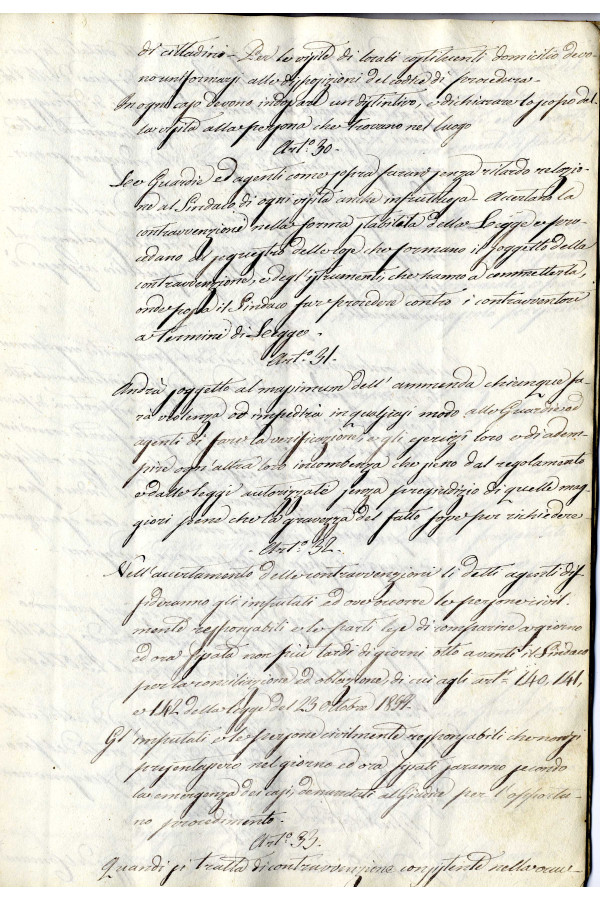 di cittadino - Per le visite di locali costituenti domicilio devo-
no uniformarsi alle disposizioni del codice di procedura -
In ogni caso devono indossare un distintivo, e dichiarare lo scopo del-
la visita alla persona che trovano nel luogo
Art.° 30.
Le Guardie ed agenti come sopra faranno senza ritardo relazio-
ne al Sindaco di ogni visita anche infruttuosa - Accertano la
contravvenzione nella forma stabilita dalla Legge e pro-
cedano al sequestro delle cose che formano il soggetto della
contravvenzione, e degl'istrumenti, che hanno a commetterla,
onde possa il Sindaco far procedere contro i contravventori
a termini di Legge -
Art.° 31.
Andrà soggetto al maximum dell'ammenda chiunque fa-
rà violenza od impedirà in qualsiasi modo alle Guardie ed
agenti di fare la verificazione, e gli esercizi loro o di adem-
pire ogni altra loro incombenza che sieno dal regolamento
o dalle leggi autorizzate senza pregiudizio di quelle mag-
giori pene che la gravezza del fatto fosse per richiedere -
- Art.° 32. -
Nell'accertamento delle contravvenzioni li detti agenti dif-
fideranno gli imputati ed ove occorre le persone civil-
mente responsabili e le parti lese di comparire a giorno
ed ora fissata non più tardi di giorni otto avanti il Sindaco
per la conciliazione ed oblazione, di cui agli art.i 140, 141,
e 142 della legge del 23 ottobre 1859.
Gl'imputati e le persone civilmente responsabili che non si
presentassero nel giorno ed ora fissati saranno secondo
la emergenza dei casi, denunziati al Giudice per l'opportu-
no procedimento -
Art.° 33.
Quando si tratta di contravvenzione consistente nella occu-